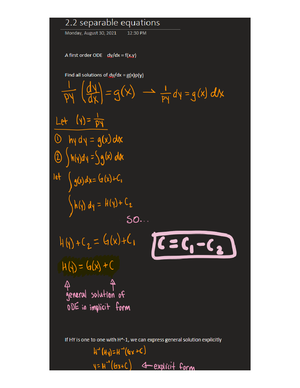 2.2 separable equations
Monday, August 30, 2021 12:30 PM
A first order ODE dy/dx = f(x,y)
Find all solutions of dy/dx = g(x)p(y)
1/py (dy/dx) = g(x) → 1/py dy = g(x) dx
Let (y) = 1/py
① hy dy = g(x) dx
② ∫h(y)dy = ∫g(x) dx
let ∫g(x)dx = G(x)+C₁
∫h(y) dy = H(y) + C₂
SO...
H(y) + C₂ = G(x)+C₁ C = C₁ - C₂
H(y) = G(x) + C
general solution of
ODE in implicit form
If HY is one to one with H^-1, we can express general solution explicitly
H⁻¹(Hy) = H⁻¹(Gx + C)
y = H⁻¹(Gx+C) ← explicit form